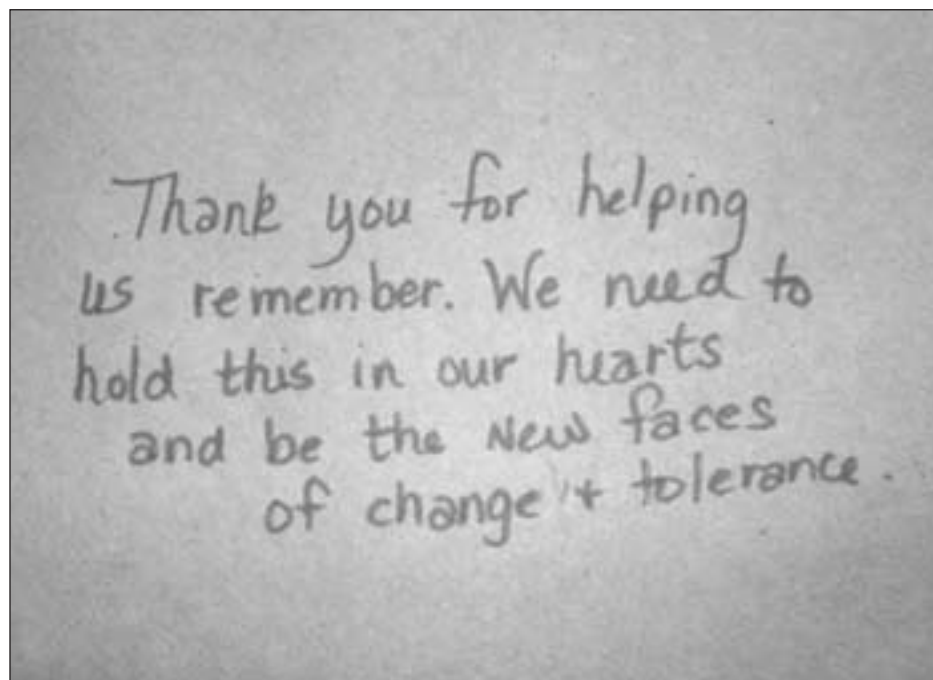 Thank you for helping
us remember. We need to
hold this in our hearts
and be the New faces
of change + tolerance.